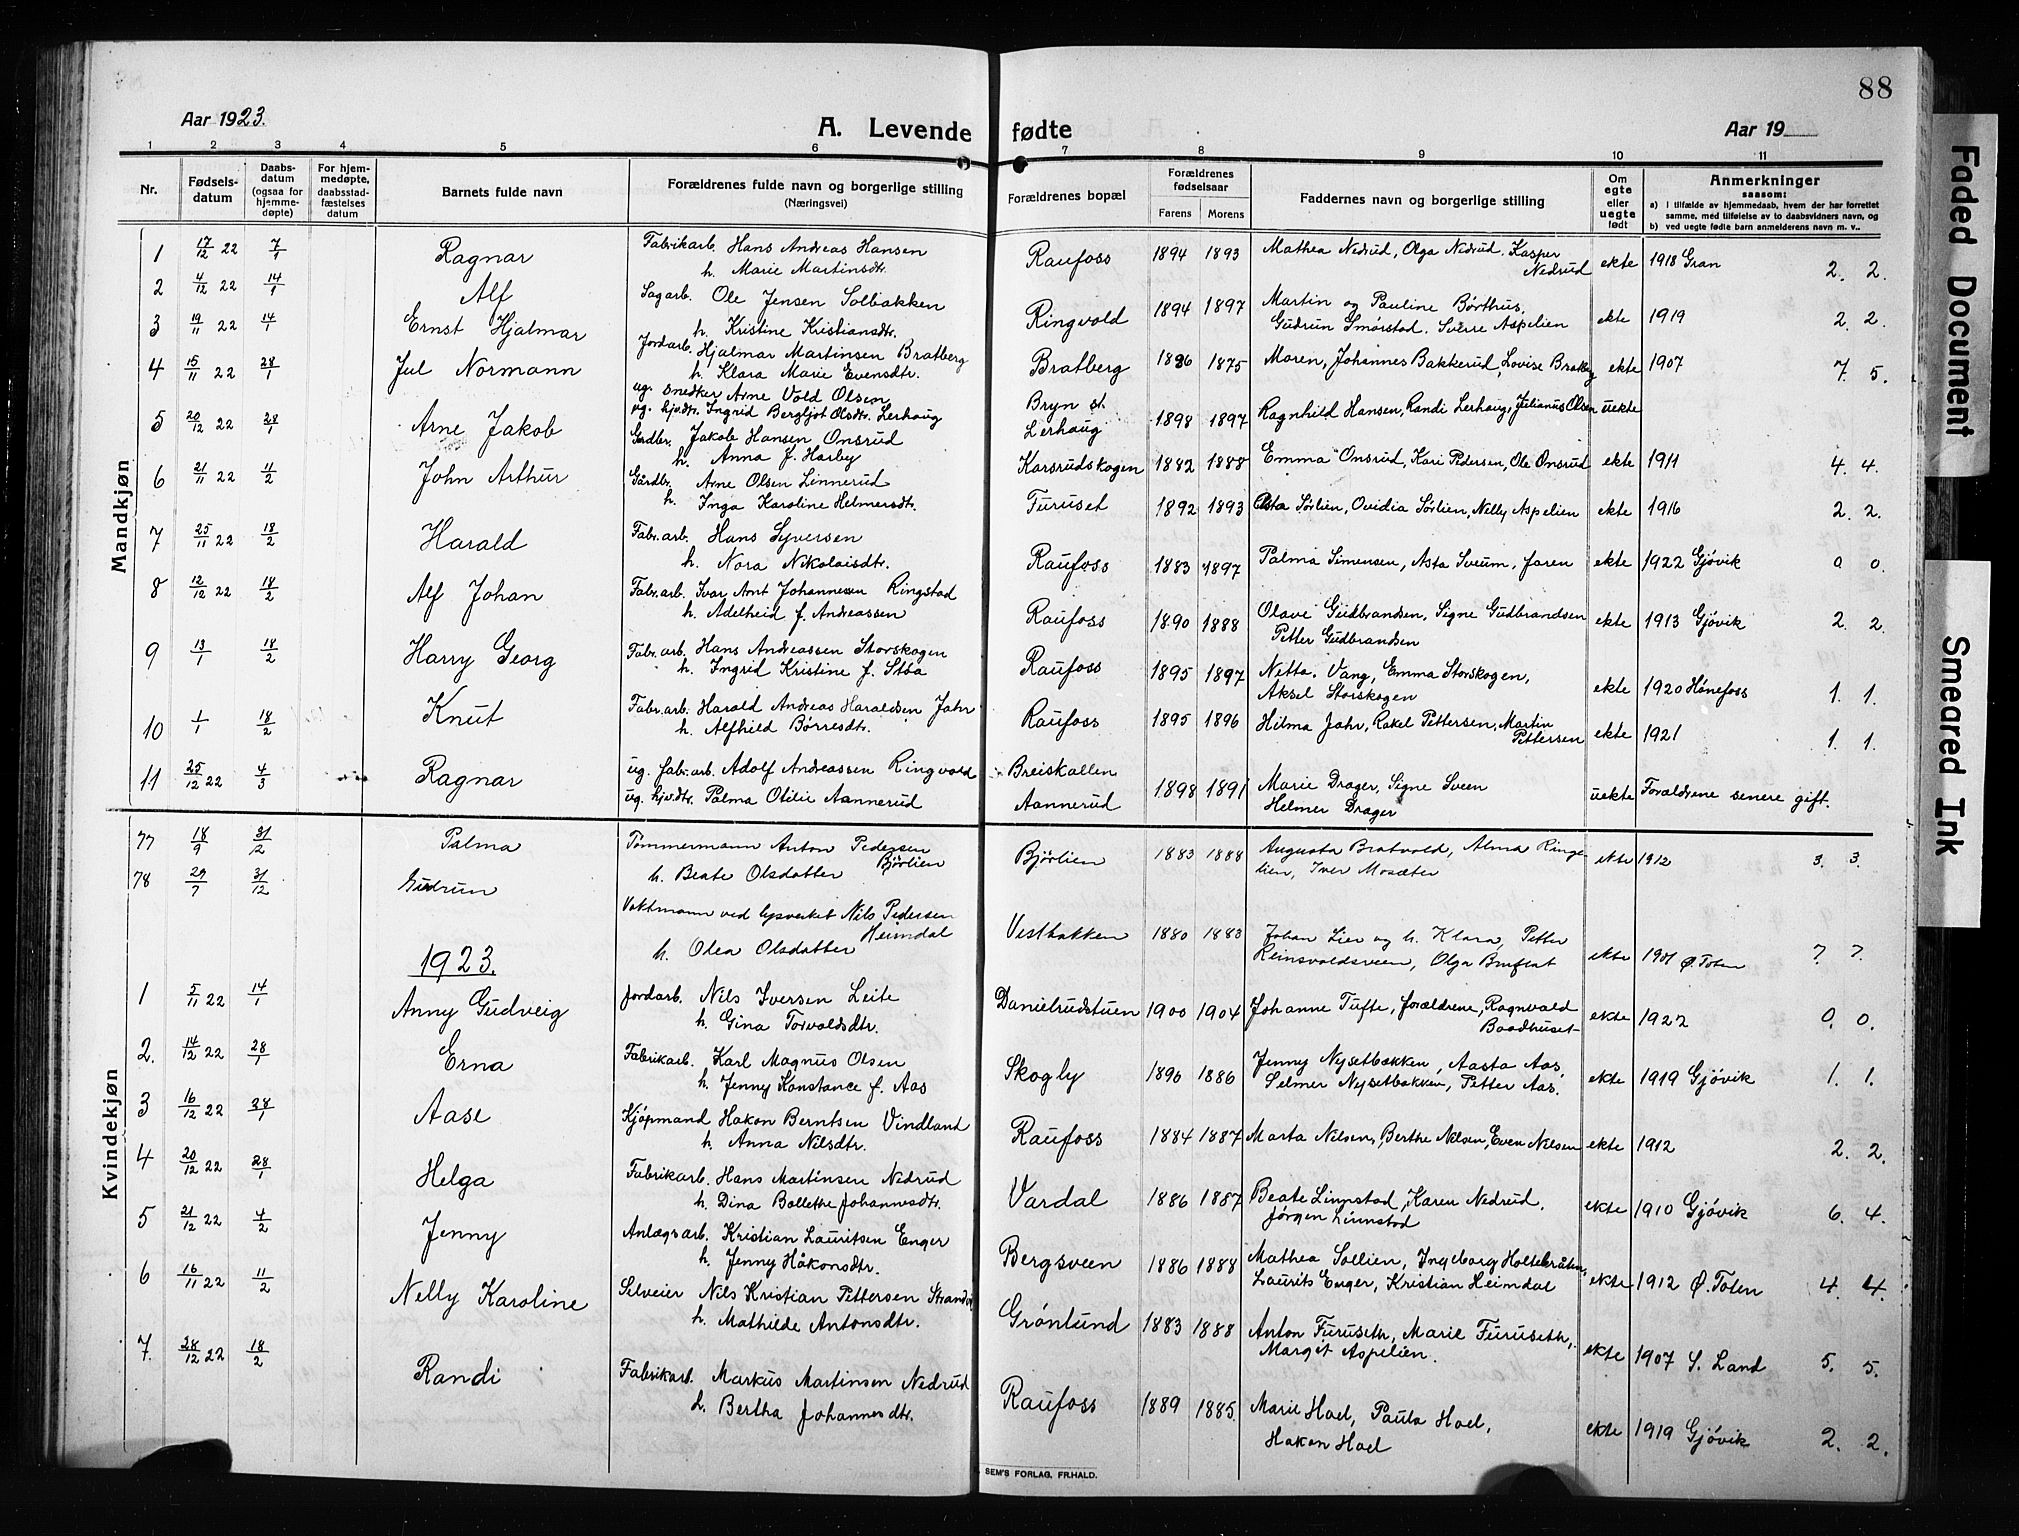 88
Aar 1923. A. Levende fødte Aar 19
1 2 3 4 5 6 7 8 9 10 11
Nr. Fødsels-datum Daabs-datum (ogsaa for hjemme-døpte) For hjem-medøpte, daabsstad-fæstelses datum Barnets fulde navn Forældrenes fulde navn og borgerlige stilling (Næringsvei) Forældrenes bopæl Forældrenes fødselsaar Farens Morens Faddernes navn og borgerlige stilling Om egte eller uegte født Anmerkninger
saasom:
a) I tilfælde av hjemmedaab, hvem der har forrettet samme, med tilføielse av to daabsvidners navn, og
b) ved uegte fødte barn anmelderens navn m. v..
Mandkjøn
1 17/12 22 7/1 Ragnar Fabrikarb. Hans Andreas Hansen h. Marie Martinsdtr. Raufoss 1894 1893 Mathea Nedrud, Olga Nedrud. Kasper Nedrud ekte 1918 Gran 2. 2.
2 4/12 22 14/1 Alf Sagarb. Ole Jensen Solbakken h. Kristine Kristiansdtr. Ringvold 1894 1897 Martin og Pauline Børthus. Gudrun Smørstad. Sverre Aspelien ekte 1919 2. 2.
3 19/11 22 14/1 Ernst Hjalmar Jordarb. Hjalmar Martinsen Bratberg h. Klara Marie Evensdtr. Bratberg 1875 Maren, Johannes Bakkerud, Lovise Bratberg ekte 1907 7. 5.
4 15/11 22 28/1 Jul Normann ug. snedker Arne Vold Olsen ug. hjv.dtr. Ingrid Bergljot Olsdtr. Lerhaug Bryn st. Lerhaug 1898 1897 Ragnhild Hansen, Randi Lerhaug, Julianus Olsen uekte
5 20/12 22 28/1 Arne Jakob Gardbr. Jakob Hansen Onsrud h. Anna f. Harby Karsrudskogen 1882 1888 Emma Onsrud, Kari Pedersen, Ole Onsrud ekte 1911 4. 4.
6 21/11 22 11/2 John Arthur Gårdbr. Arne Olsen Linnerud h. Inga Karoline Helmersdtr. Furuset 1892 1893 Asta Sørlien, Ovidia Sørlien, Nelly Aspelien ekte 1916 2. 2.
7 25/11 22 18/2 Harald Fabr.arb. Hans Syversen h. Nora Nikolaisdtr. Raufoss 1883 1897 Palma Simensen, Asta Sveum, faren ekte 1922 Gjøvik 0. 0.
8 12/12 22 18/2 Alf Johan Fabr.arb. Ivar Arnt Johannessen Ringstad h. Adelheid f. Andreassen Raufoss 1890 1888 Olave Gudbrandsen, Signe Gudbrandsen Petter Gudbrandsen ekte 1913 Gjøvik 2. 2.
9 13/1 18/2 Harry Georg Fabr.arb. Hans Andreassen Storskogen h. Ingrid Kristine f. Stoa Raufoss 1895 1897 Netta. Vang, Emma Storskogen, Aksel Storskogen ekte 1920 Hønefoss 1. 1.
10 1/1 18/2 Knut Fabr.arb. Harald Andreas Haraldsen Jahr h. Alfhild Børresdtr. Raufoss 1895 1896 Hilma Jahr, Rakel Pettersen, Martin Pettersen ekte 1921 1. 1.
11 25/12 22 4/3 Ragnar ug. fabr.arb. Adolf Andreassen Ringvold ug. hjv.dtr. Palma Otilie Aannerud Breiskallen Aannerud 1898 1891 Marie Drager, Signe Sveen Helmer Drager uekte Foraldrene senere gift.
Kvindekjøn
77 18/9 31/12 Palma Tømmermann Anton Pedersen Bjørlien h. Beate Olsdatter Bjørlien 1883 1888 Augusta Bratvold, Alma Ringelien, Iver Mosæter ekte 1912 3. 3.
78 29/7 31/12 Gudrun Vaktmann ved lysverket Nils Pedersen Heimdal h. Olea Olsdatter Vestbakken 1880 1883 Johan Lier og h. Klara, Petter Reinsvoldsveen, Olga Bruflat ekte 1901 Ø. Toten 7. 7.
1923.
1 5/11 22 14/1 Anny Gudveig Jordarb. Nils Iversen Leite h. Gina Torvaldsdtr. Danielrudstuen 1900 1904 Johanne Tufte, forældrene, Ragnvald Baadhuset ekte 1922 0. 0.
2. 14/12 22 28/1 Erna Fabrikarb. Karl Magnus Olsen h. Jenny Konstance f. Aas Skogly 1890 1886 Jenny Nysetbakken, Aasta Aas, Selmer Nysetbakken, Petter Aas. ekte 1919 Gjøvik 1. 1.
3 16/12 22 28/1 Aase Kjøpmand Hakon Berntsen Vindland h. Anna Nilsdtr. Raufoss 1884 1887 Marta Nilsen, Berthe Nilsen, Even Nilsen ekte 1912 2. 2.
4 20/12 22 28/1 Helga Fabrikarb. Hans Martinsen Nedrud h. Dina Bollette Johannesdtr. Vardal 1886 1887 Beate Linnstad, Karen Nedrud. Jørgen Linnstad ekte 1910 Gjøvik 6. 4.
5 21/12 22 4/2 Jenny Anlægsarb. Kristian Lauritsen Enger h. Jenny Håkonsdtr. Bergsveen 1886 1888 Mathea Sollien, Ingeborg Holtebråten, Laurits Enger, Kristian Heimdal ekte 1912 Ø. Toten 4. 4.
6 16/11 22 11/2 Nelly Karoline Selveier Nils Kristian Pettersen h. Mathilde Antonsdtr. Grønlund 1883 1888 Anton Furuseth, Marie Furuseth, Margit Aspelien. ekte 1907 S. Land 5. 5.
7. 28/12 22 18/2 Randi Fabrikarb. Markus Martinsen Nedrud h. Bertha Johannesdtr. Raufoss 1889 1885. Marie Hoel, Paula Hoel, Hakon Hoel ekte 1919 Gjøvik 2. 2.
SEM'S FORLAG, FR.HALD.
Faded Document
Smeared Ink